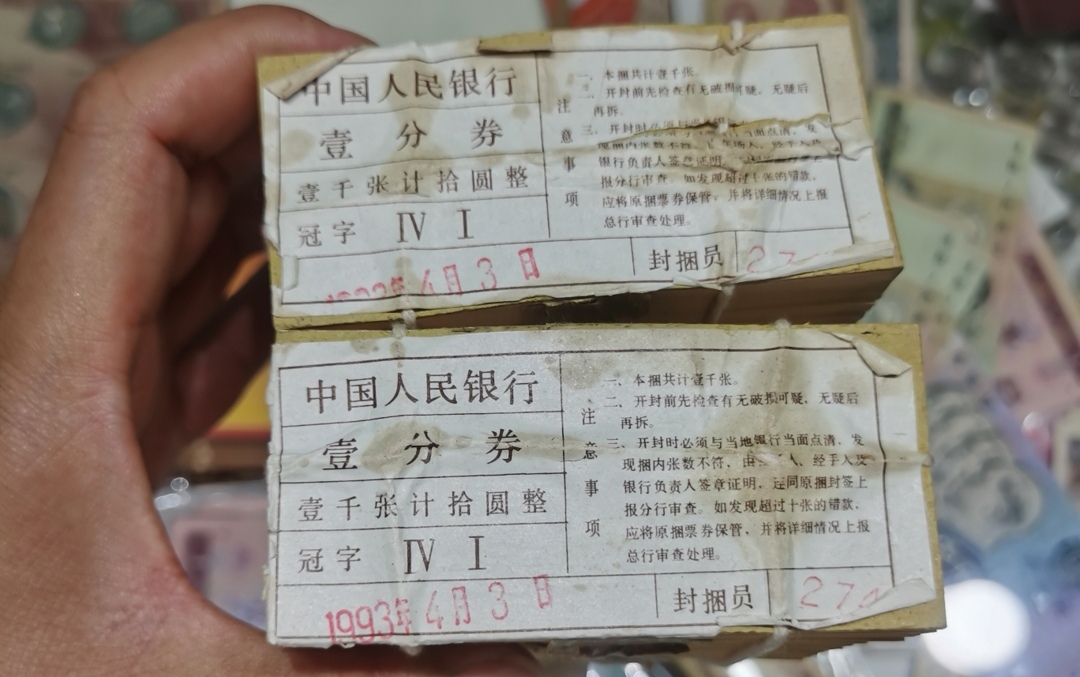 中国人民银行
壹分券
壹千张计拾圆整
冠字 Ⅳ Ⅰ
4月3日
注意事项
一、本捆共计壹千张。
二、开封前先检查有无破损可疑，无疑后
再拆。
三、开封时必须 当面点清，发
现捆内张数不符，
银行负责人签章证明，
报分行审查。如发现超过十张的错款，
应将原捆票券保管，并将详细情况上报
总行审查处理。
封捆员 27
中国人民银行
壹分券
壹千张计拾圆整
冠字 Ⅳ Ⅰ
1993年4月3日
注意事项
一、本捆共计壹千张。
二、开封前先检查有无破损可疑，无疑后
再拆。
三、开封时必须与当地银行当面点清，发
现捆内张数不符，由 人、经手人及
银行负责人签章证明，连同原捆封签上
报分行审查。如发现超过十张的错款，
应将原捆票券保管，并将详细情况上报
总行审查处理。
封捆员 27